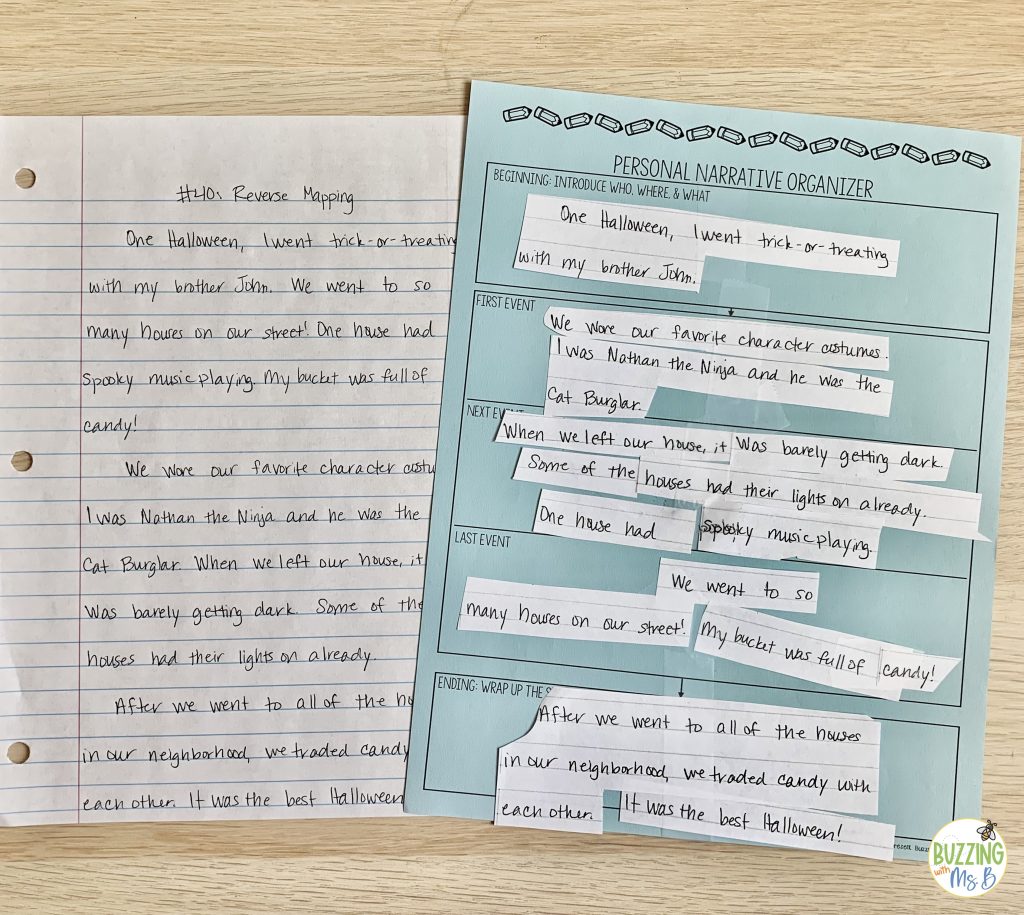 #40: Reverse Mapping
One Halloween, I went trick-or-treating
with my brother John. We went to so
many houses on our street! One house had
spooky music playing. My bucket was full of
candy!
We wore our favorite character costu
I was Nathan the Ninja and he was the
Cat Burglar. When we left our house, it
was barely getting dark. Some of the
houses had their lights on already.
After we went to all of the ho
in our neighborhood, we traded candy
each other. It was the best Halloween
PERSONAL NARRATIVE ORGANIZER
BEGINNING: INTRODUCE WHO, WHERE, & WHAT
One Halloween, I went trick-or-treating
with my brother John.
FIRST EVENT
We wore our favorite character costumes.
I was Nathan the Ninja and he was the
Cat Burglar.
NEXT EVENT
When we left our house, it was barely getting dark.
Some of the houses had their lights on already.
One house had spooky music playing.
LAST EVENT
We went to so
many houses on our street! My bucket was full of candy!
ENDING: WRAP UP THE S
After we went to all of the houses
in our neighborhood, we traded candy with
each other. It was the best Halloween!
BUZZING
with
Ms. B